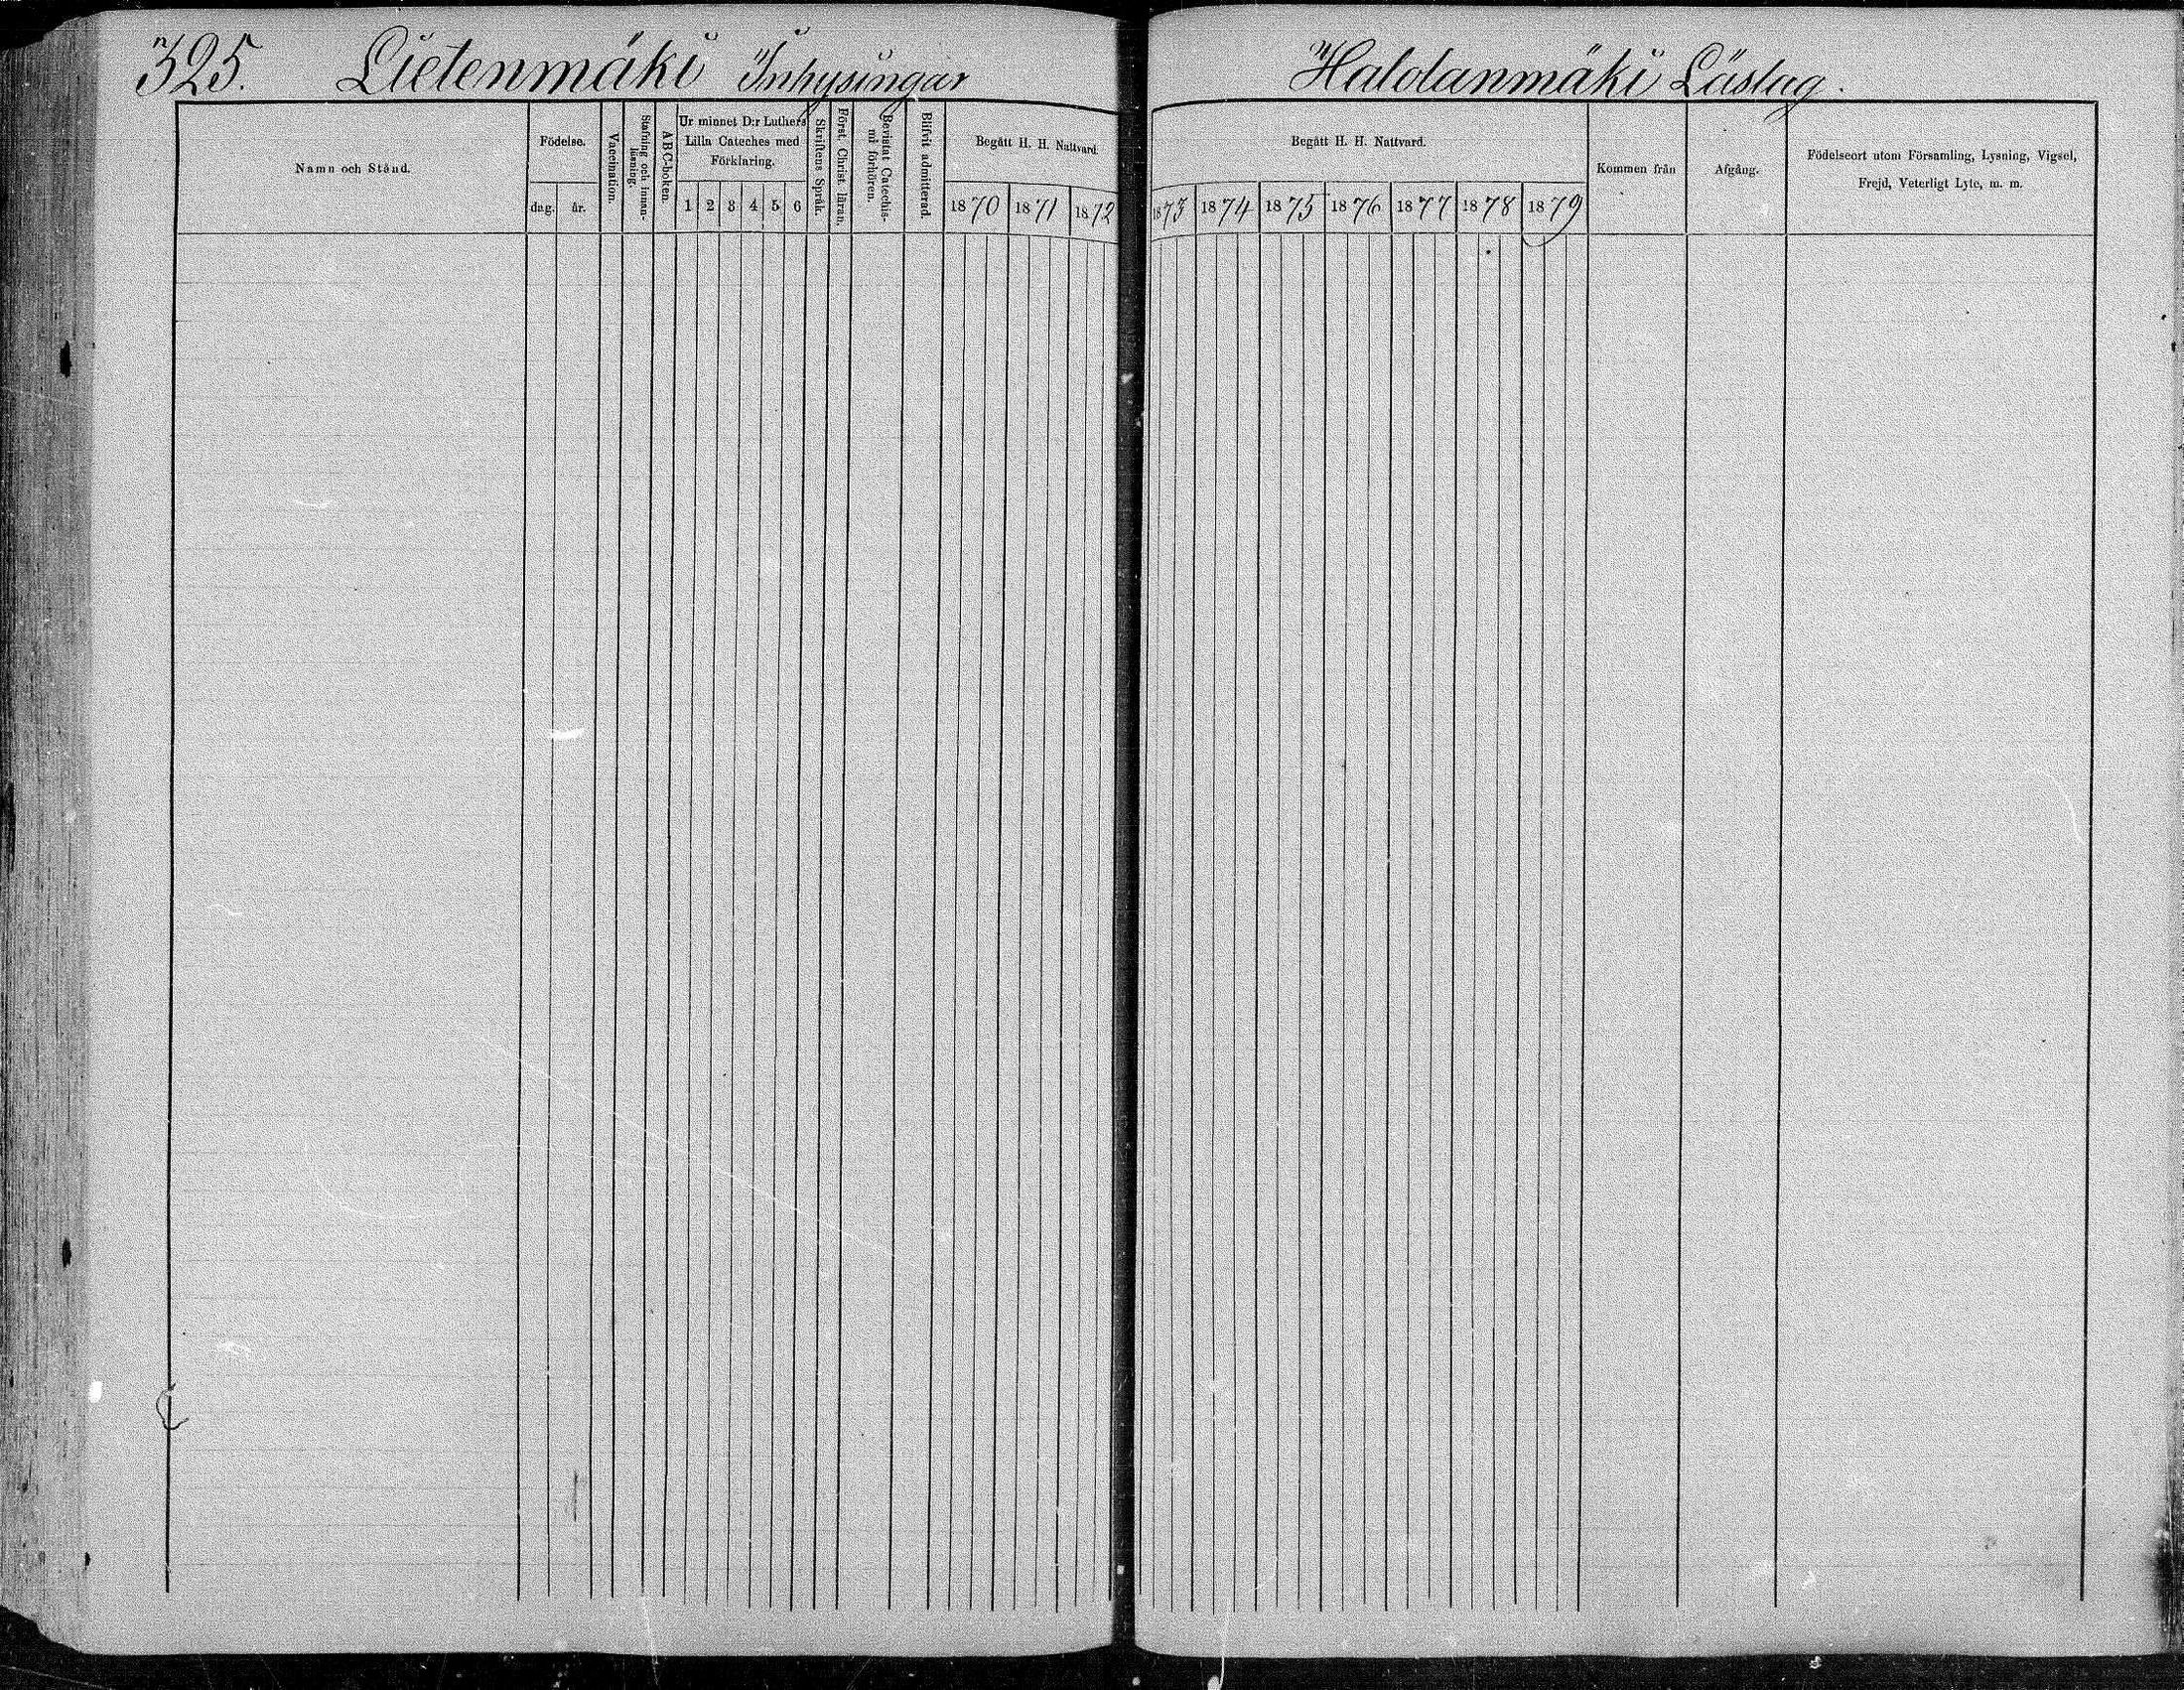 325. Lietenmäki Inhysingar
Namn och Stånd.
Födelse.
dag. år.
Vaccination.
Stafning och innan-
läsning.
ABC-boken.
Ur minnet D:r Luthers
Lilla Cateches med
Förklaring.
1 2 3 4 5 6
Skriftens Språk.
Först. Christ. läran.
Bevistat Catechis-
mi förhören.
Blifvit admitterad.
Begått H. H. Nattvard.
1870 1871 1872
Haldanmäki Läslag.
Begått H. H. Nattvard.
1873 1874 1875 1876 1877 1878 1879
Kommen från
Afgång.
Födelseort utom Församling, Lysning, Vigsel,
Frejd, Veterligt Lyte, m. m.